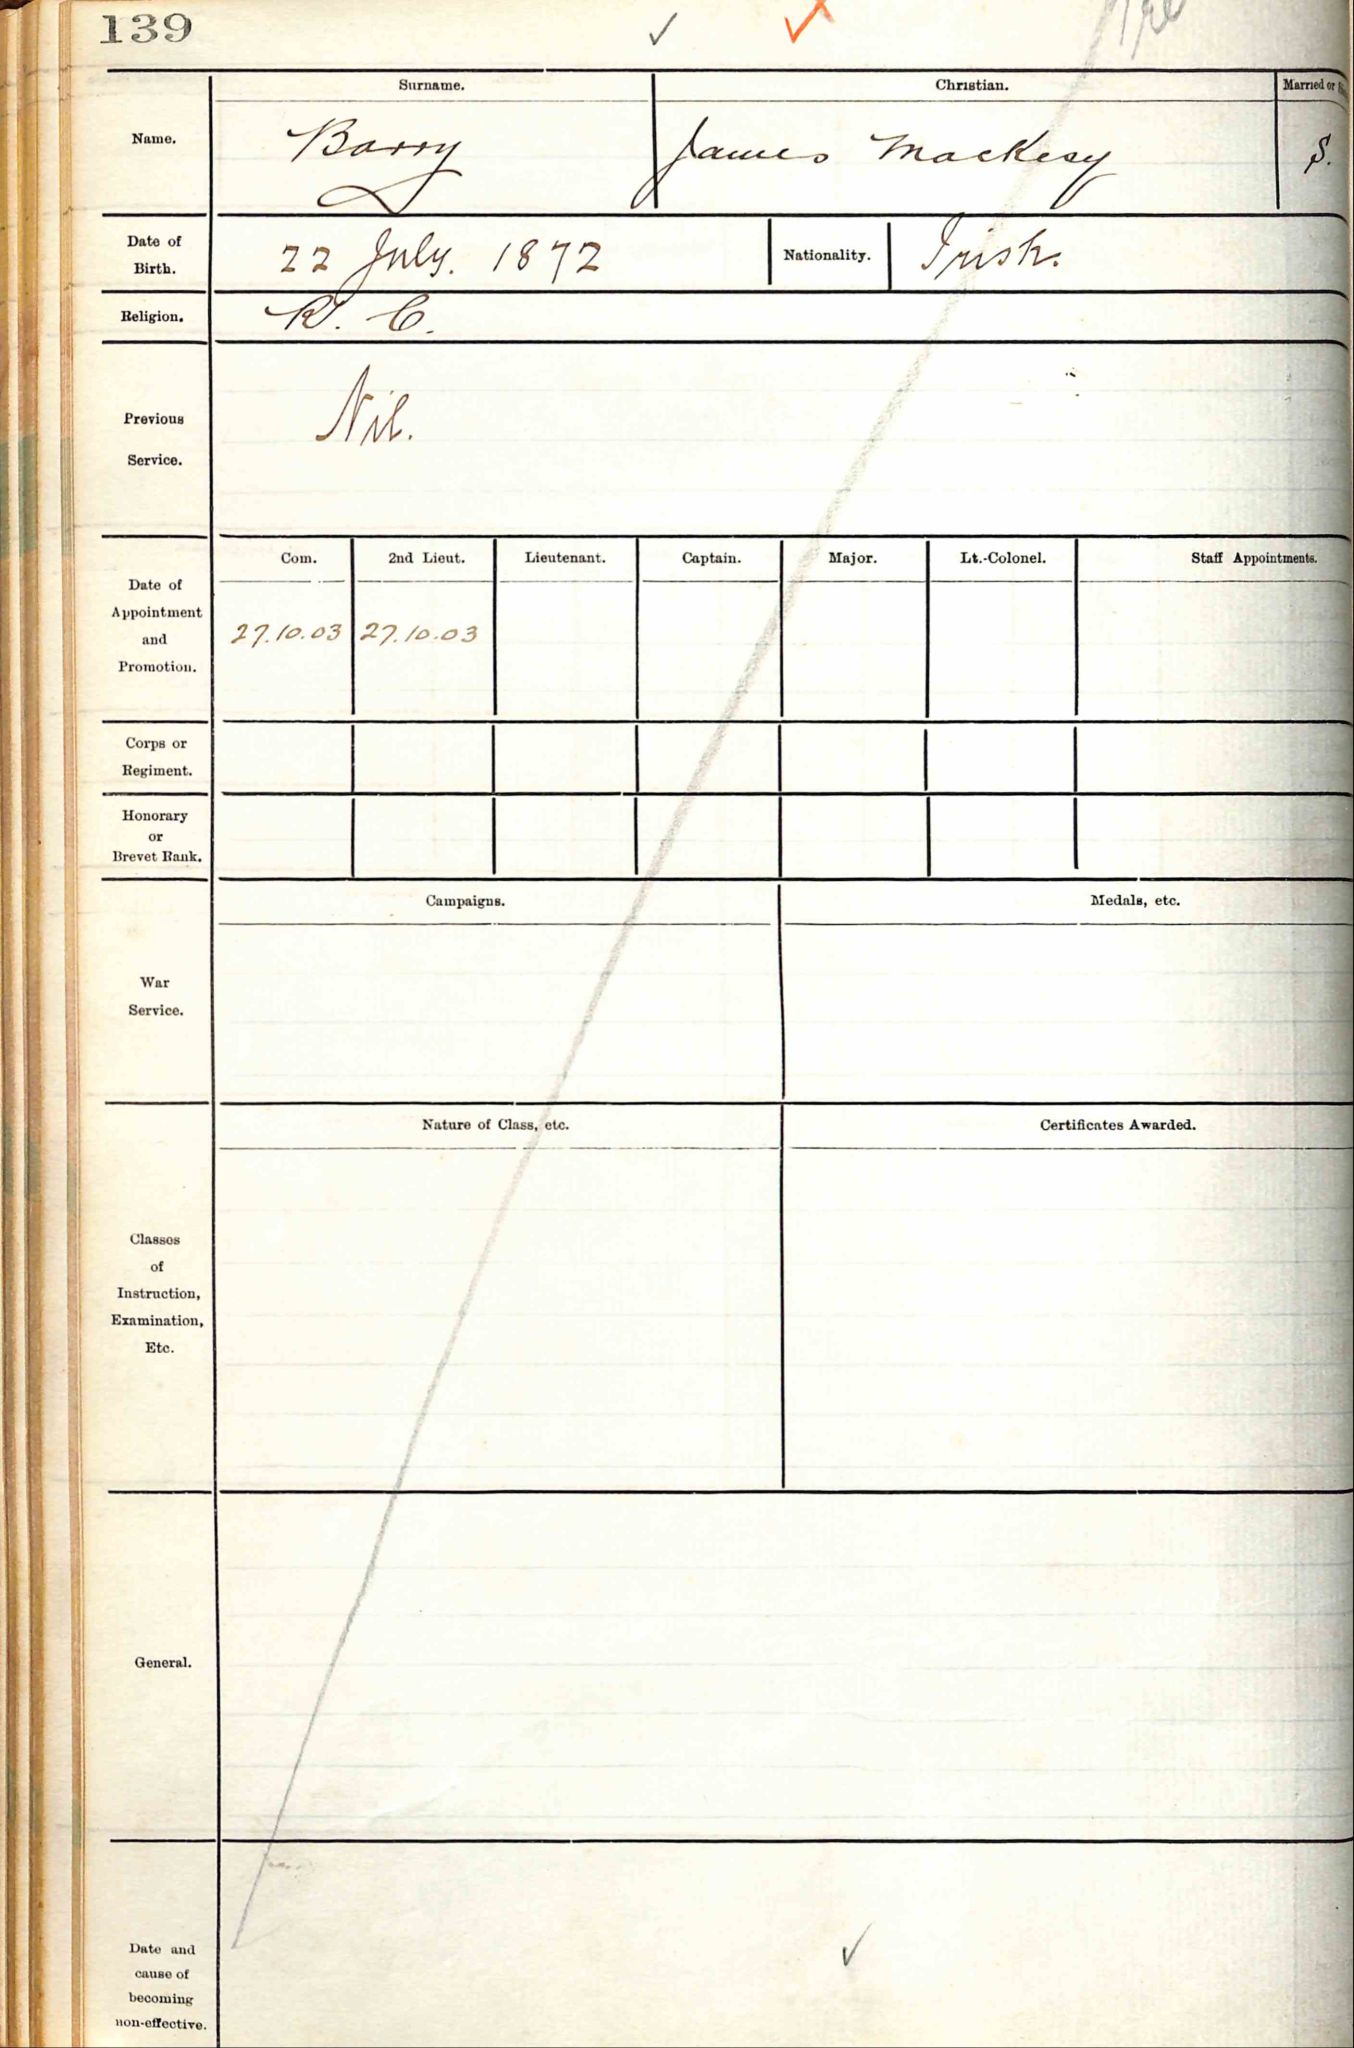 139
Surname. Christian. Married or
Name. Barry James Mackesy S.
Date of Birth. 22 July. 1872 Nationality. Irish.
Religion. R. C.
Previous Service. Nil.
Com. 2nd Lieut. Lieutenant. Captain. Major. Lt.-Colonel. Staff Appointments.
Date of
Appointment
and
Promotion.
27.10.03 27.10.03
Corps or
Regiment.
Honorary
or
Brevet Rank.
Campaigns. Medals, etc.
War
Service.
Nature of Class, etc. Certificates Awarded.
Classes
of
Instruction,
Examination,
Etc.
General.
Date and
cause of
becoming
non-effective.